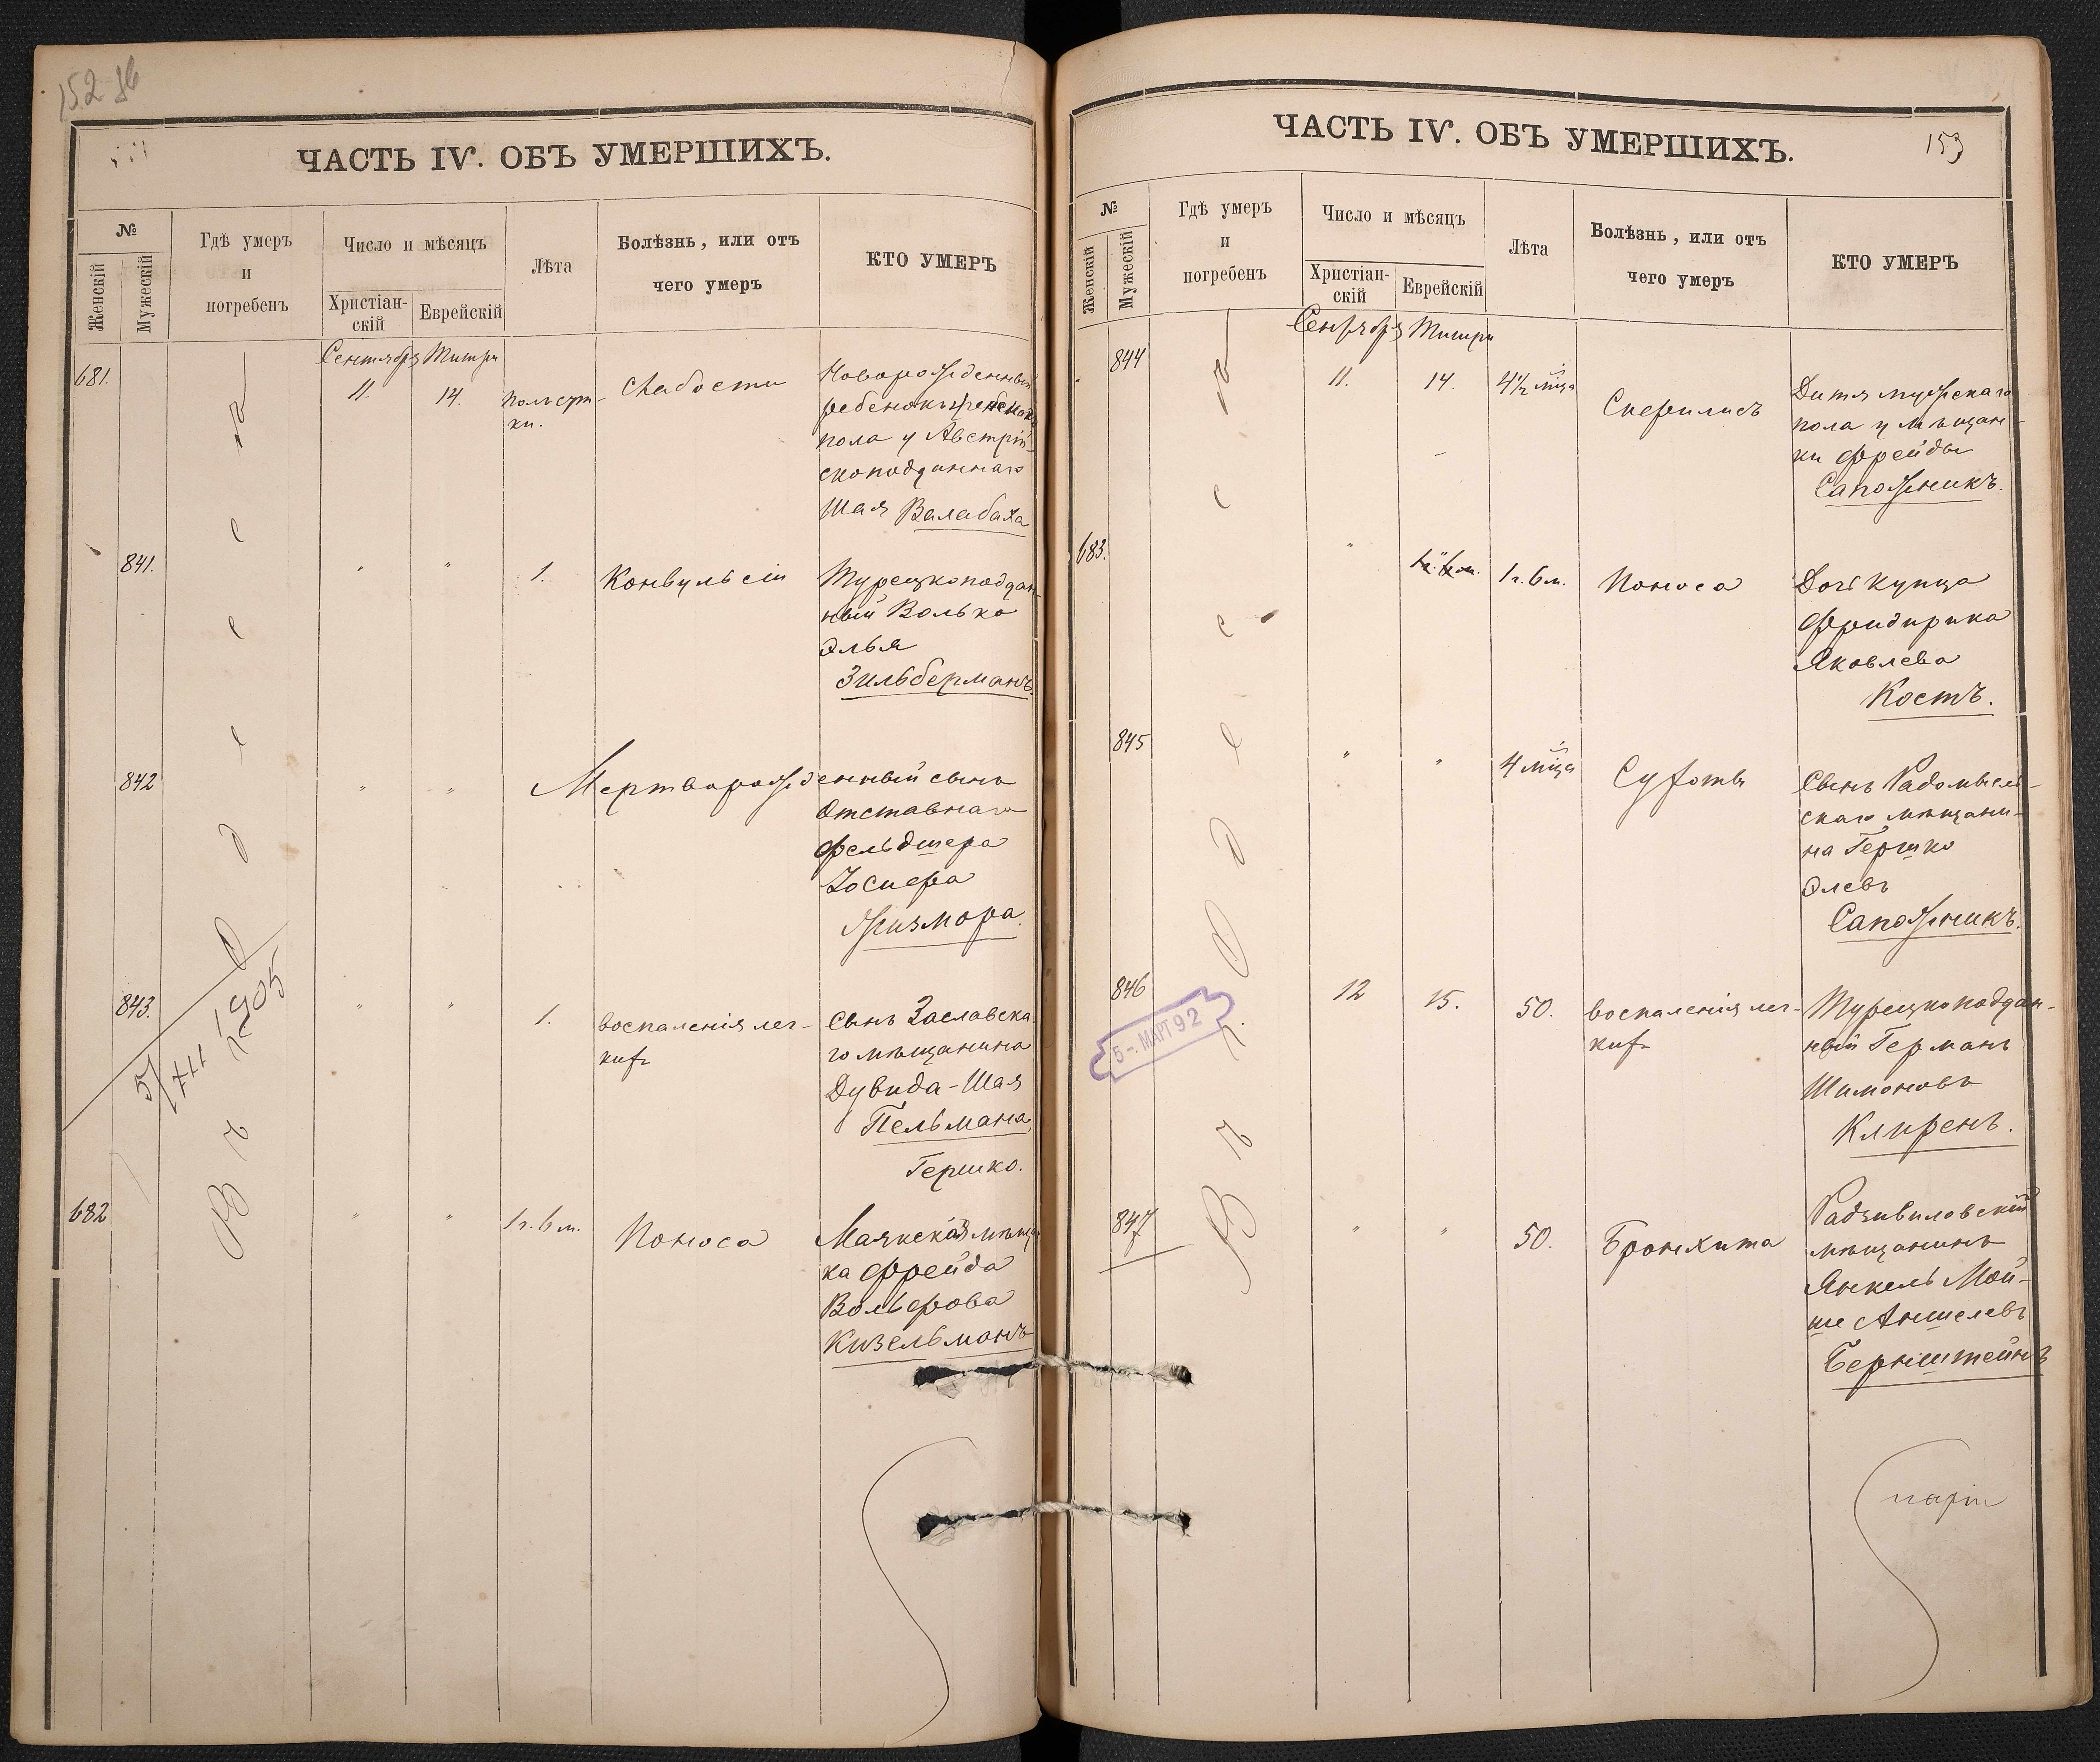 152
ЧАСТЬ IV. ОБЪ УМЕРШИХЪ.
№
Женскій
Мужескій
Гдѣ умеръ
и
погребенъ
Число и мѣсяцъ
Христіан-
скій
Еврейскій
Лѣта
Болѣзнь, или отъ
чего умеръ
КТО УМЕРЪ
Сентября Тишри
681.
11.
14.
полсут-
ки.
Слабости
Новорожденный
ребенокъ женскаго
пола у Австрій-
скоподданнаго
Шая Валабаха
841.
"
"
1.
Конвульсіи
Турецкоподдан-
ный Волько
Элья
Зильберманъ.
842
"
"
Мертворожденный сынъ
Отставнаго
фельдшера
Іосифа
Жизмора.
843.
"
"
1.
воспаленія лег-
кихъ
Сынъ Заславска-
го мѣщанина
Дувида-Шая
Пельмана,
Гершко.
682
"
"
1 г. 6 м.
Поноса
Маякская мѣщан
ка Фрейда
Вольфова
Кизельманъ
Въ г. Одессѣ
5/XII 1905
ЧАСТЬ IV. ОБЪ УМЕРШИХЪ.
153
№
Женскій
Мужескій
Гдѣ умеръ
и
погребенъ
Число и мѣсяцъ
Христіан-
скій
Еврейскій
Лѣта
Болѣзнь, или отъ
чего умеръ
КТО УМЕРЪ
Сентября Тишри
844
11.
14.
4½ мѣца
Сифилисъ
Дитя мужскаго
пола у мѣщан-
ки Фрейды
Сапожникъ.
683.
"
"
1 г. 6 м.
1 г. 6 м.
Поноса
Дочь купца
Фридириха
Яковлева
Костъ.
845
"
"
4 мѣца
Сухоты
Сынъ Радомысль-
скаго мѣщани-
на Гершко
Элевъ
Сапожникъ.
846
12
15.
50.
воспаленія лег-
кихъ
Турецкоподдан-
ный Германъ
Шимоновъ
Клиренъ.
847
"
"
50.
Бронхита
Радзивиловскій
мѣщанинъ
Янкель Мой-
ше Аншелевъ
Бернштейнъ
Въ г. Одессѣ
5-. МАРТ 92